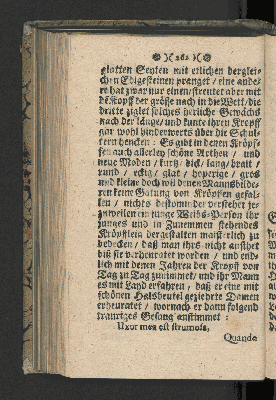 )( 262 )(
glatten Seyten mit etlichen derglei-
chen Edlgesteinen pranget / eine ande-
re hat zwar nur einen / streitet aber mit
dem Kropff der größe nach in die Wett / die
dritte ziglet solches herliche Gewächs
nach der länge / und kunte ihren Kropff
gar wohl hinderwerts über die Schul-
tern hencken: Es gibt in denen Kröpf-
fen auch allerley schöne Arthen / und
neue Moden / kurtz / dick / lang / brait /
rund / eckig / glat / hoperige / gros
und kleine doch wil denen Mannsbilde-
ren keine Gatung von Kröpfen gefal-
len / nichts destominder verstehet je-
zuweilen ein junge Weibs-Person ihr
junges und in Zunemmen stehendes
Kröpflein dergestalten maisterlich zu
bedecken / daß man ihrs nicht ansihet
biß sie verheuratet worden / und end-
lich mit denen Jahren der Kropff von
Tag zu Tag zunimmet / und ihr Mann
es mit Laid erfahren / daß er eine mit
schönen Halsbeutel gezierdte Damen
erheuratet / wornach er dann folgend
trauriges Gesang anstimmet:
Uxor mea est strumosa,
Quando